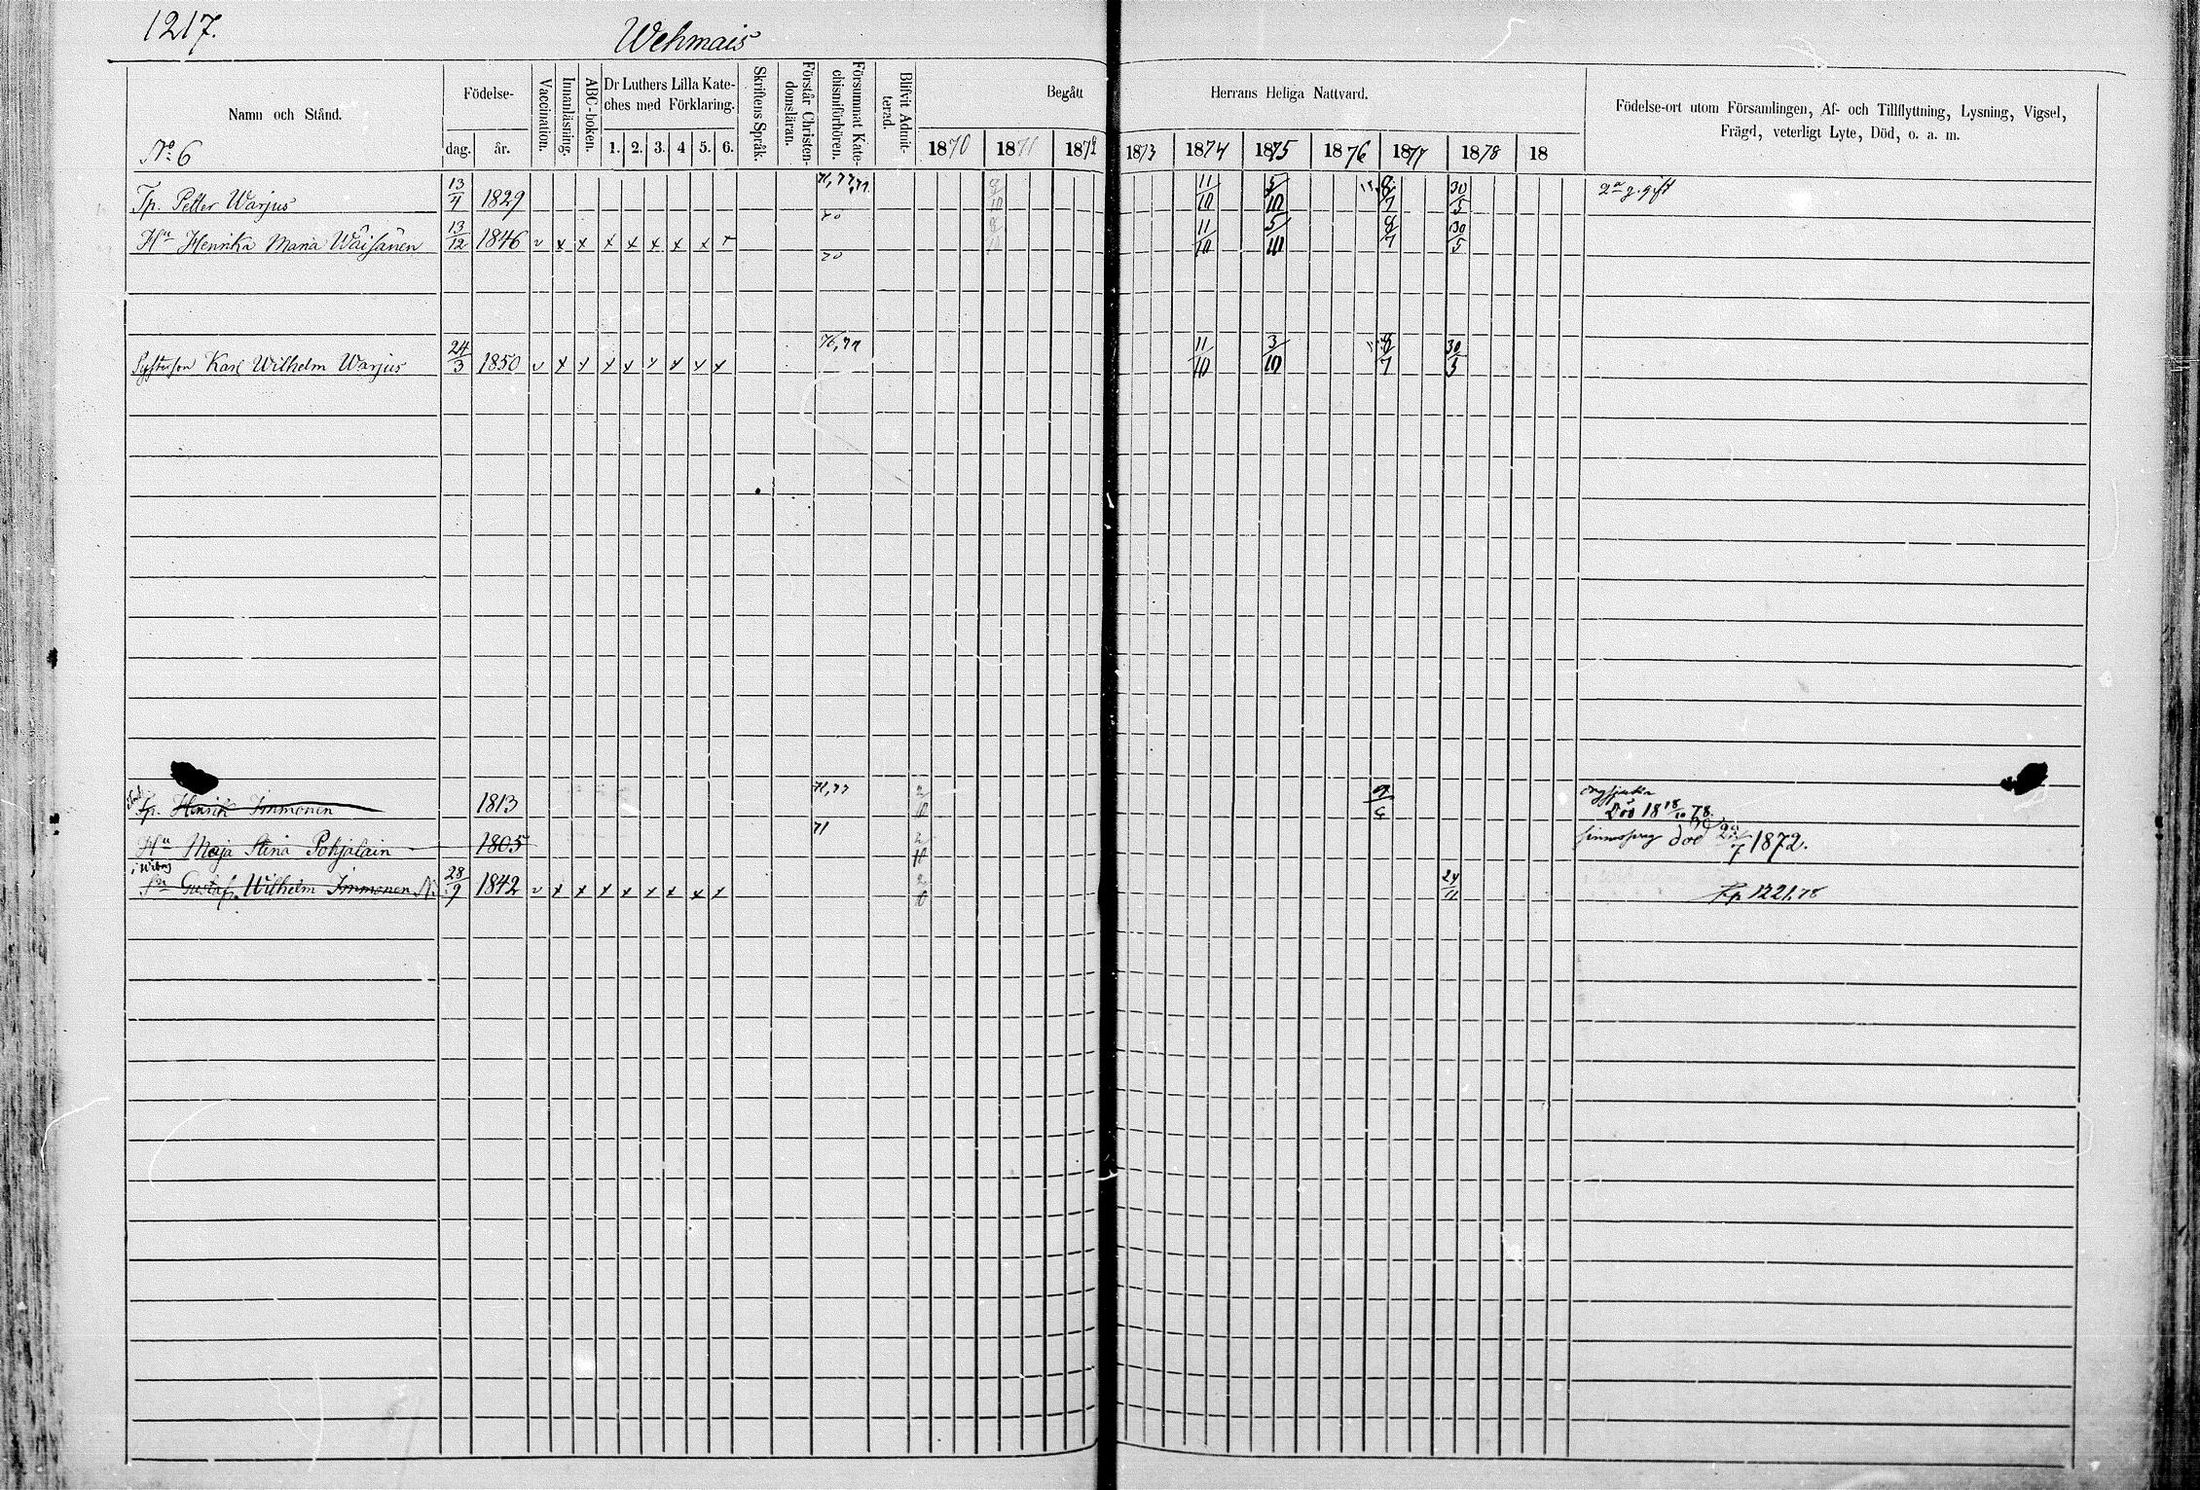 1217.
Wehmais
Namn och Stånd.
Födelse-
dag.
år.
Vaccination.
Innanläsning.
ABC-boken.
Dr Luthers Lilla Kate-
ches med Förklaring.
1. 2. 3. 4 5. 6.
Skriftens Språk.
Förstår Christen-
domsläran.
Försummat Kate-
chismiförhören.
Blifvit Admit-
terad.
Begått Herrans Heliga Nattvard.
1870 1871 1872 1873 1874 1875 1876 1877 1878 18
Födelse-ort utom Församlingen, Af- och Tillflyttning, Lysning, Vigsel,
Frägd, veterligt Lyte, Död, o. a. m.
No 6
Tp. Petter Warjus 13/4 1829 11/10 5/10 8/7 30/5 2a g. gift
Hu Henrika Maria Wäisänen 13/12 1846 v x x x x x x x x 70 11/10 5/10 8/7 30/5
70
Systerson Karl Wilhelm Warjus 24/3 1850 v x x x x x x x x 76, 77 11/10 3/10 8/7 30/5
Tp. Henrik Immonen 1813 Död 18 18/10 78.
Hu Maja Stina Pohjalain 1805 71 död 1872.
Sn Gustaf Wilhelm Immonen 28/9 1842 v x x x x x x x x 24/11 1221, 78